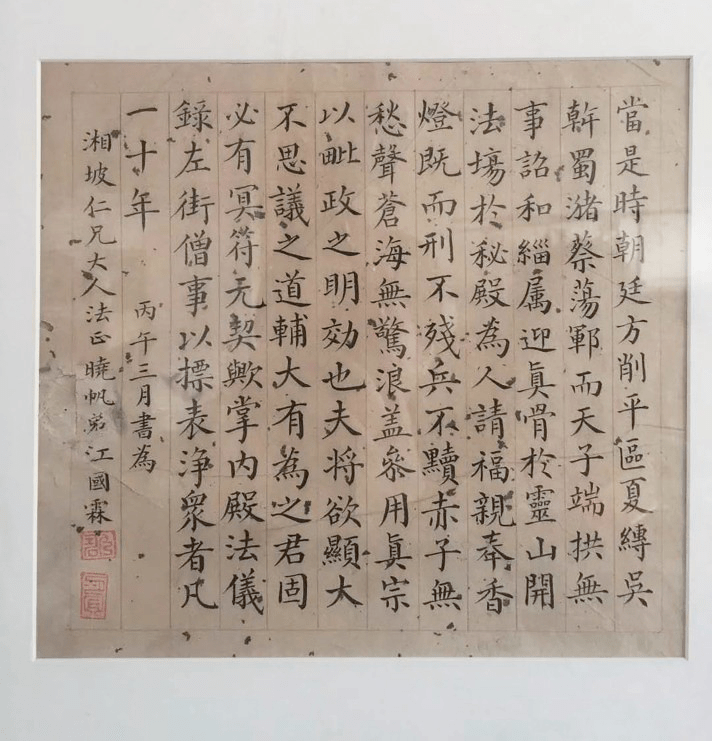 當是時朝廷方削平區夏縛吳
斡蜀潴蔡蕩鄆而天子端拱無
事詔和緇属迎眞骨於靈山開
法場於秘殿為人請福親奉香
燈既而刑不殘兵不黷赤子無
愁聲蒼海無驚浪盖叅用眞宗
以毗政之明効也夫将欲顯大
不思議之道輔大有為之君固
必有冥符元契歟掌内殿法儀
錄左街僧事以摽表浄衆者凡
一十年 丙午三月書為
湘坡仁兄大人法正曉帆弟江國霖